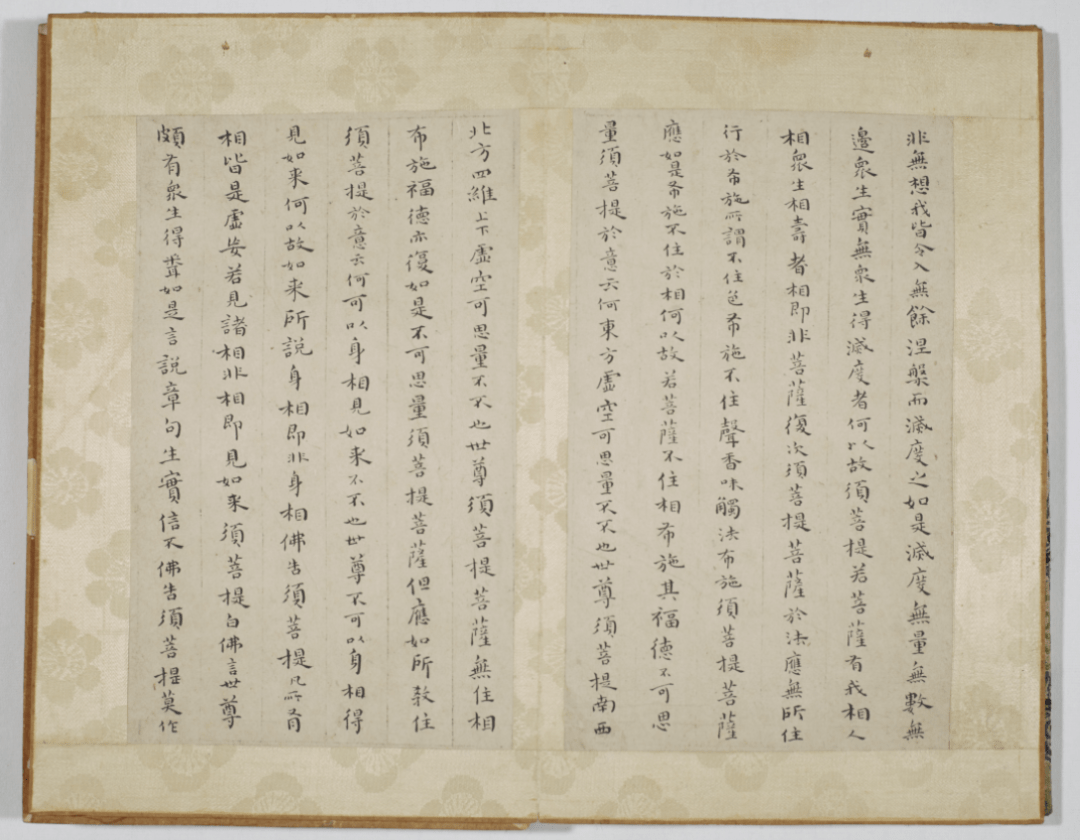 非無想我皆令入無餘涅槃而滅度之如是滅度無量無數無
邊衆生實無衆生得滅度者何以故須菩提若菩薩有我相人
相衆生相壽者相即非菩薩復次須菩提菩薩於法應無所住
行於布施所謂不住色布施不住聲香味觸法布施須菩提菩薩
應如是布施不住於相何以故若菩薩不住相布施其福德不可思
量須菩提於意云何東方虛空可思量不不也世尊須菩提南西
北方四維上下虛空可思量不不也世尊須菩提菩薩無住相
布施福德亦復如是不可思量須菩提菩薩但應如所教住
須菩提於意云何可以身相見如來不不也世尊不可以身相得
見如來何以故如來所說身相即非身相佛告須菩提凡所有
相皆是虛妄若見諸相非相即見如來須菩提白佛言世尊
頗有衆生得聞如是言說章句生實信不佛告須菩提莫作